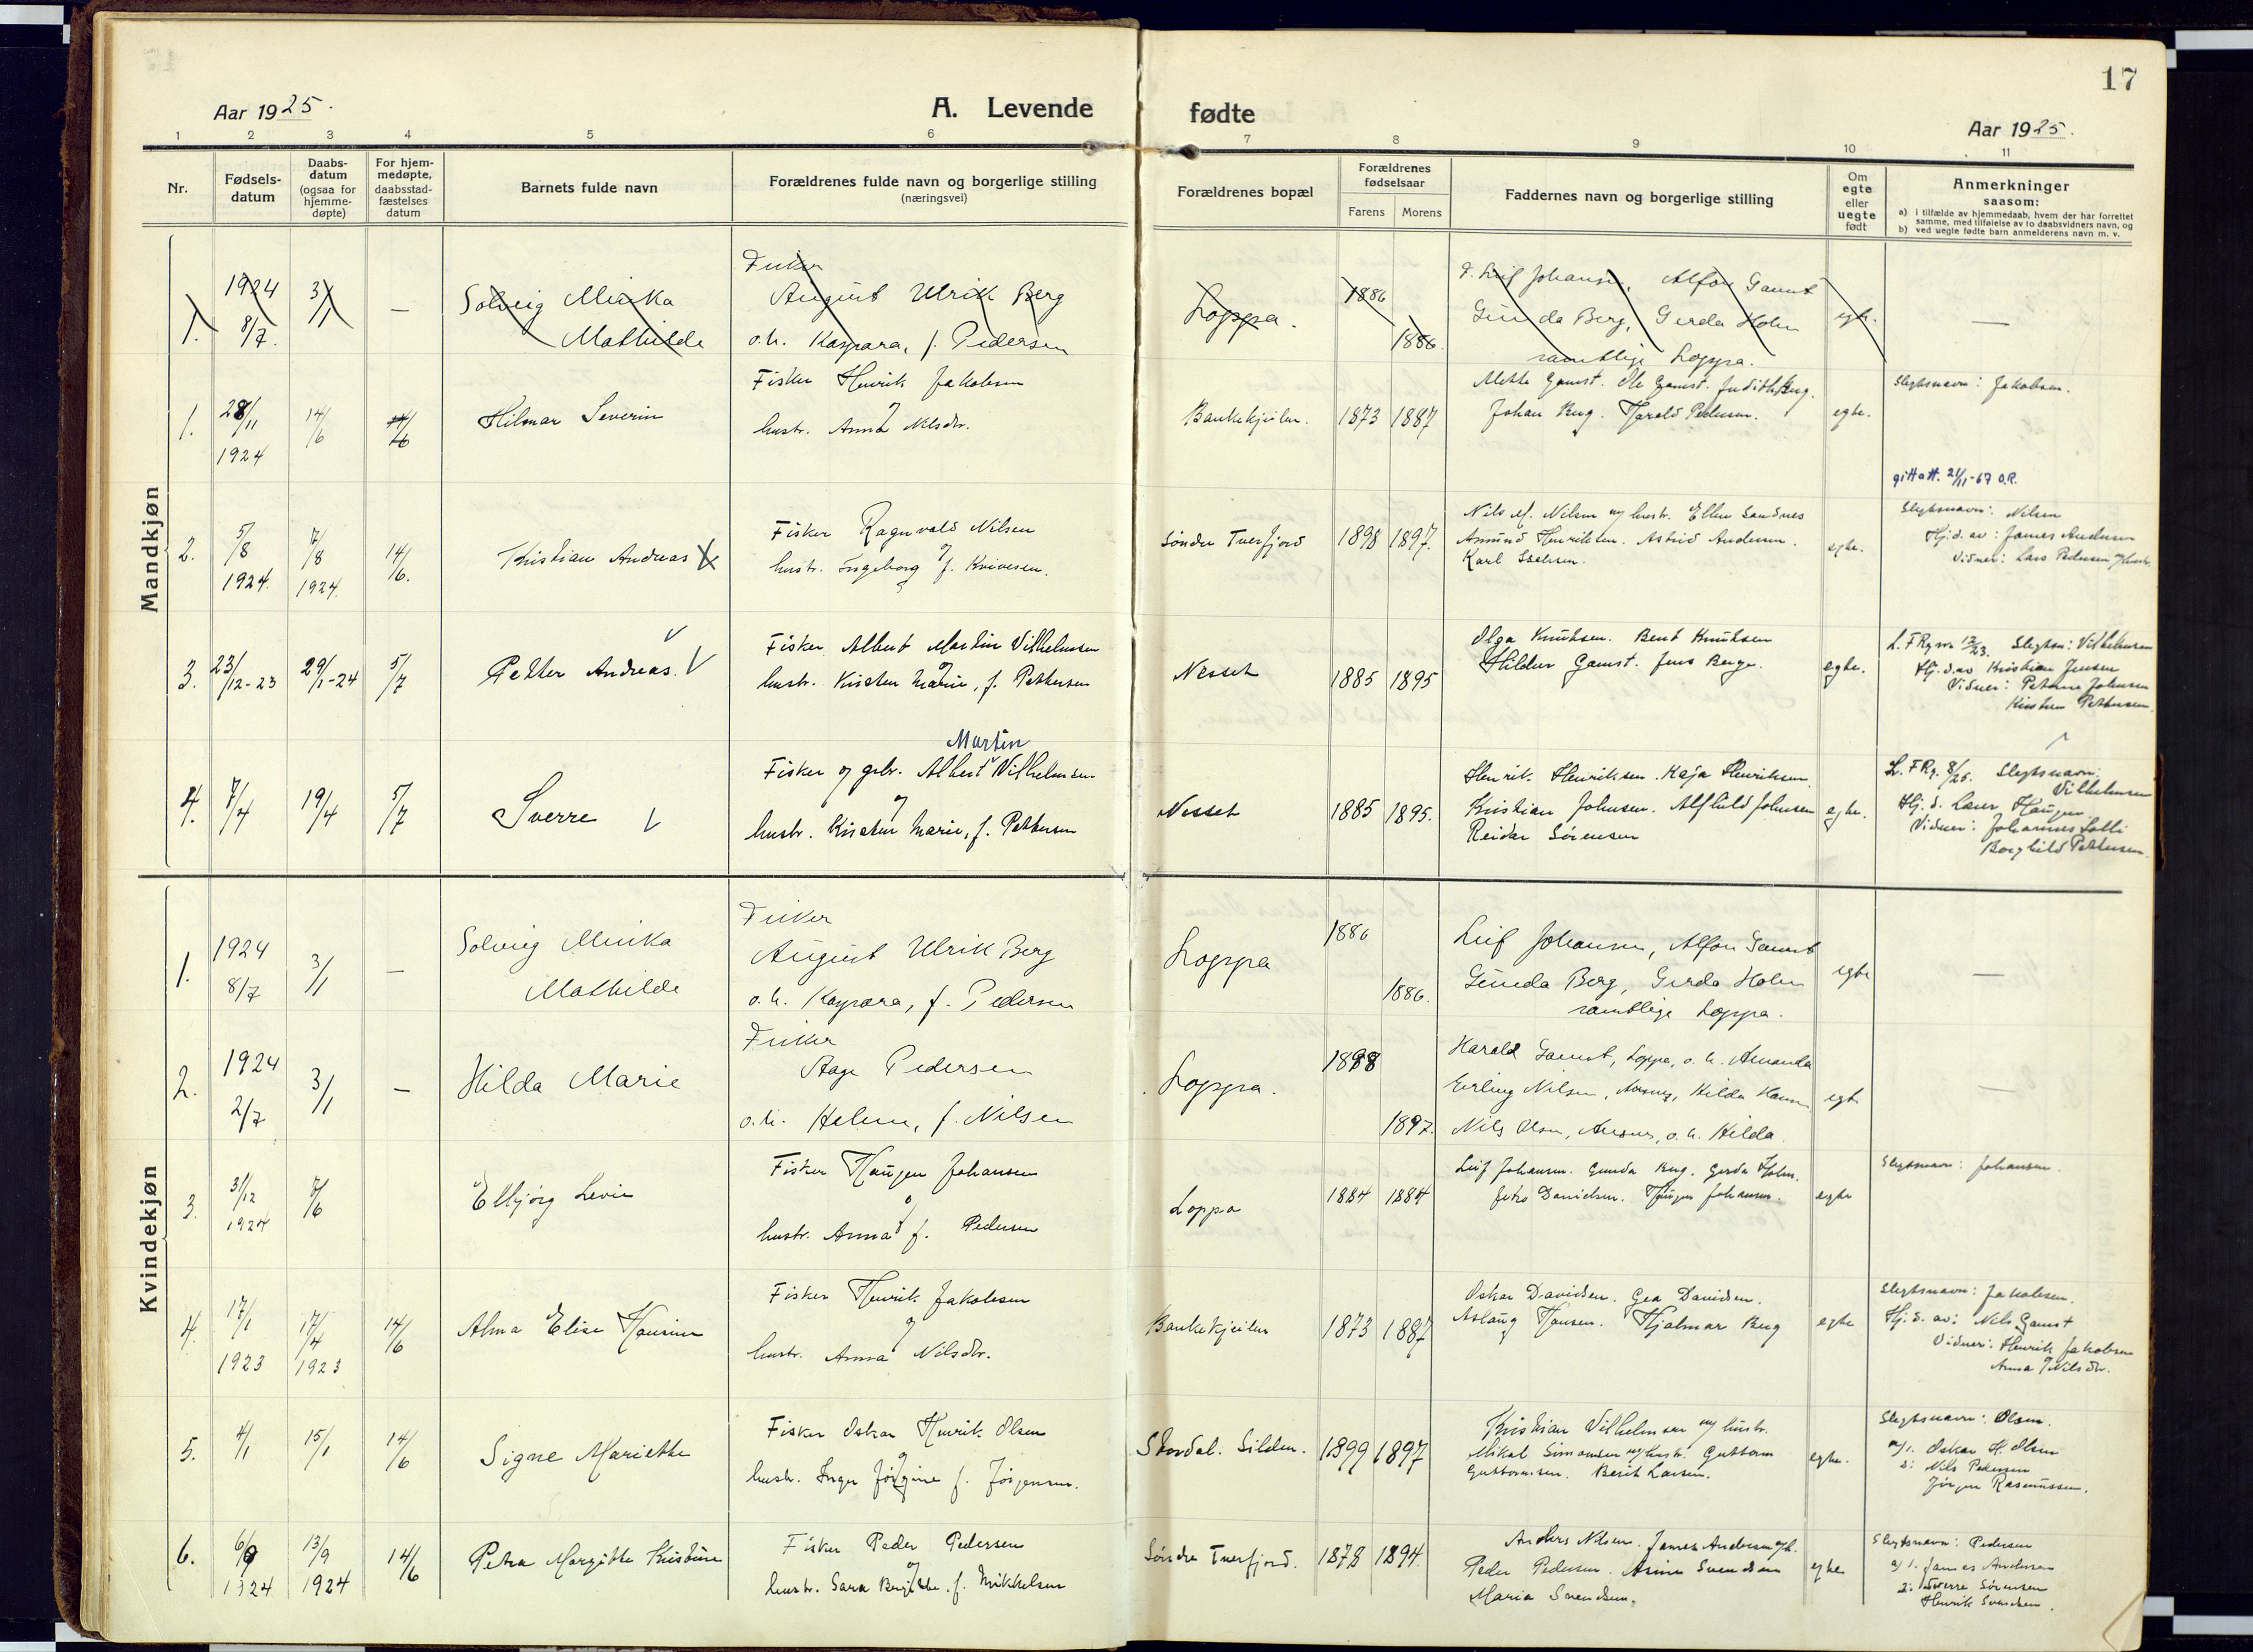 17
Aar 1925.
A. Levende fødte
Aar 1925.
1 2 3 4 5 6 7 8 9 10 11
Nr.
Fødsels-
datum
Daabs-
datum
(ogsaa for
hjemme-
døpte)
For hjem-
medøpte,
daabsstad-
fæstelses
datum
Barnets fulde navn
Forældrenes fulde navn og borgerlige stilling
(næringsvei)
Forældrenes bopæl
Forældrenes
fødselsaar
Farens Morens
Faddernes navn og borgerlige stilling
Om
egte
eller
uegte
født
Anmerkninger
saasom:
a) i tilfælde av hjemmedaab, hvem der har forrettet
samme, med tilføielse av to daabsvidners navn, og
b) ved uegte fødte barn anmelderens navn m. v.
Mandkjøn
1. 1924 8/7. 3/1 —
Solveig Minka
Mathilde
Fisker
August Ulrik Berg
o.h. Kaspara, f. Pedersen
Loppa. 1886 1886.
Leif Johansen, Alfon Gamst
Gunda Berg, Gerda Holm
samtlige Loppa.
egte. —
1. 28/11 1924 14/6 14/6
Hilmar Severin
Fisker Henrik Jakobsen
og
hustr. Anna Nilsdtr.
Bankekjeilen. 1873 1887
Alette Gamst. Ole Gamst. Judith Berg.
Johan Berg. Harald Pedersen.
egte.
Slegtsnavn: Jakobsen.
gitt att. 21/11-67 O.R.
2. 5/8 1924. 7/8 1924. 14/6.
Kristian Andreas X
Fisker Ragnvald Nilsen
og
hustr. Ingeborg f. Kvivesen.
Søndre Tverfjord 1898 1897.
Nils M. Nilsen og hustr. Ellen Sandnes
Amund Henriksen. Astrid Andersen.
Karl
egte.
Slegtsnavn: Nilsen
Hj.d. av: James Andersen
Vidner: Lars Pedersen og hustr.
3. 23/12-23 29/1-24 5/7
Petter Andreas. V
Fisker Albert Martin Vilhelmsen
og
hustr. Kirsten Marie, f. Pettersen
Nesset 1885 1895
Olga Knutsen. Bent Knutsen
Hildur Gamst. Jens Berge.
egte.
Slegtsn: Vilhelmsen
Hj.d. av Kristian Jensen
Vidner: Petrine Johnsen
Kirsten Pettersen.
4. 7/4 19/4 5/7
Sverre V
Martin
Fisker og gbr. Albert Vilhelmsen
og
hustr. Kirsten Marie, f. Pettersen
Nesset 1885 1895.
Henrik Henriksen. Kaja Henriksen
Kristian Johnsen. Alfhild Johnsen
Reidar Sørensen
egte.
L. FRg. 8/25. Slegtsnavn:
Vilhelmsen
Hj.d. Laur Haugen
Vidner: Johannes
Borghild Pettersen.
Kvindekjøn
1. 1924 8/7 3/1 —
Solveig Minka
Mathilde
Fisker
August Ulrik Berg
o.h. Kaspara, f. Pedersen
Loppa 1886 1886.
Leif Johansen, Alfon Gamst
Gunda Berg, Gerda Holm
samtlige Loppa.
egte —
2. 1924 2/7 3/1 —
Hilda Marie
Fisker
Aage Pedersen
o.h. Helene, f. Nilsen
Loppa. 1898 1897.
Harald Gamst, Loppa, o.h. Amanda
Erling Nilsen, Hilda
Nils Olsen, o.h. Hilda.
egte —
3. 31/12 1924 7/6
Elbjørg Levin
Fisker Haugen Johansen
og
hustr. Anna f. Pedersen
Loppa 1884 1884
Leif Johansen. Gunda Berg. Gerda Holm.
Danielsen. Haugen Johansen.
egte
Slegtsnavn: Johansen.
4. 17/1 1923 17/4 1923 14/6
Alma Elise
Fisker Henrik Jakobsen
og
hustr. Anna Nilsdtr.
Bankekjeilen 1873 1887
Oskar Davidsen. Gea Davidsen.
Aslaug Hansen. Hjalmar Berg
egte
Slegtsnavn: Jakobsen.
Hj.d. av: Nils Gamst
Vidner: Henrik Jakobsen
Anna Nilsdtr.
5. 4/1 15/1 14/6
Signe Mariette
Fisker Oskar Henrik Olsen
og
hustr. Inga Jørgine f. Jørgensen.
Stordal. Silden. 1899 1897
Kristian Vilhelmsen og hustr.
Mikal Simonsen og hustr. Guttorm
Guttormsen. Berit Larsen.
egte.
Slegtsnavn: Olsen.
a) 1. Oskar H. Olsen
2: Nils Pedersen
Jørgen Rasmussen.
6. 6/9 1924 13/9 1924 14/6
Petra Margitte Kristine
Fisker Peder Pedersen
og
hustr. Sara Bergitte f. Mikkelsen
Søndre Tverfjord. 1878 1894.
Anders Nilsen. James Andersen
Peder Pedersen. Asine Svendsen
Maria Svendsen.
egte
Slegtsnavn: Pedersen
a) 1. James Andersen
2: Sverre Sørensen
Henrik Svendsen.